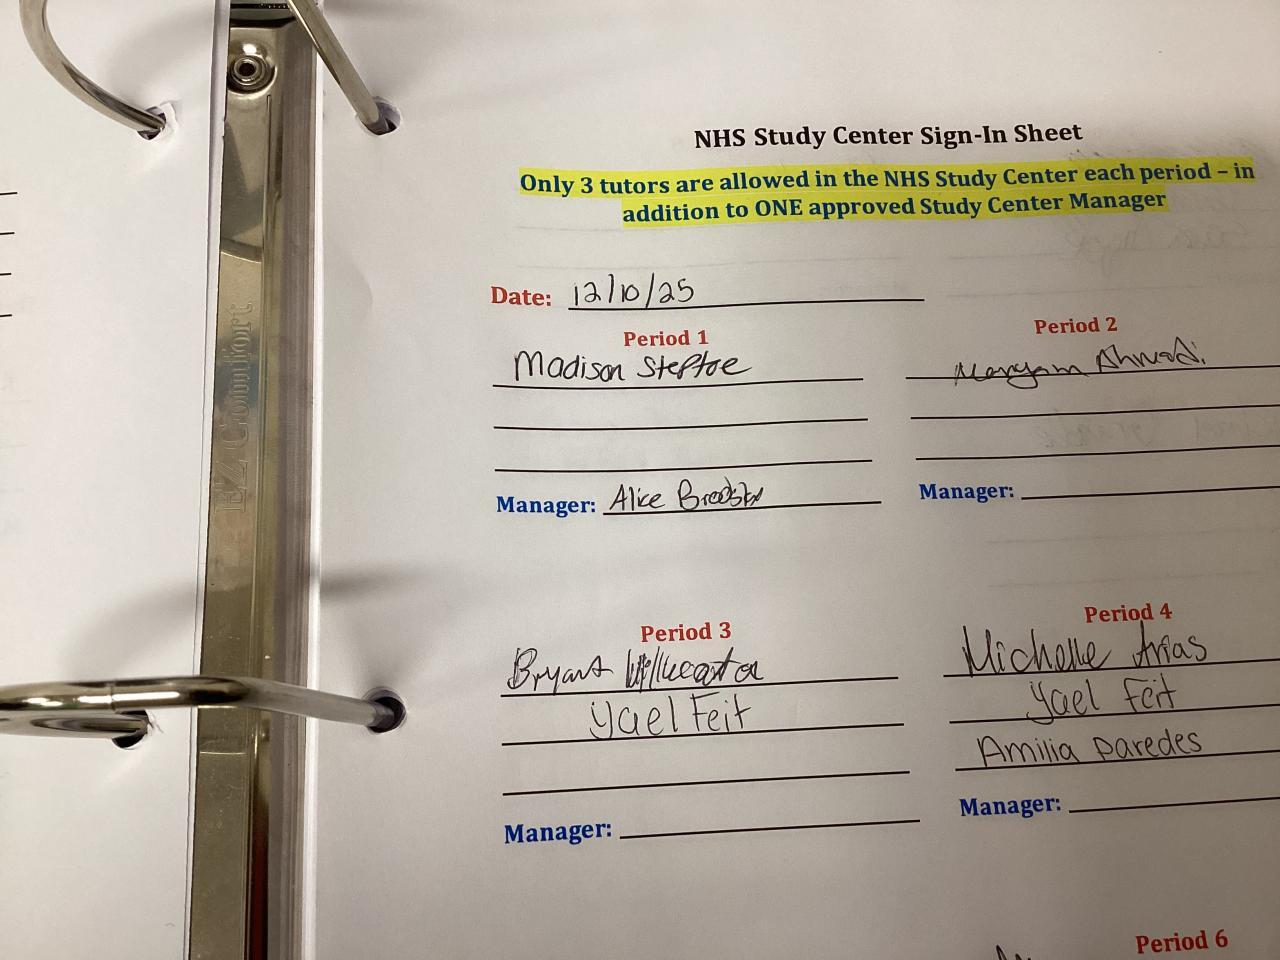 NHS Study Center Sign-In Sheet
Only 3 tutors are allowed in the NHS Study Center each period – in
addition to ONE approved Study Center Manager
Date: 12/10/25
Period 1
Madison Steptoe
Manager: Alice
Period 2
Maryam Ahmadi
Manager:
Period 3
Bryant
Yael Feit
Manager:
Period 4
Michelle Arias
Yael Feit
Amilia Paredes
Manager:
Period 6
EZ Comfort